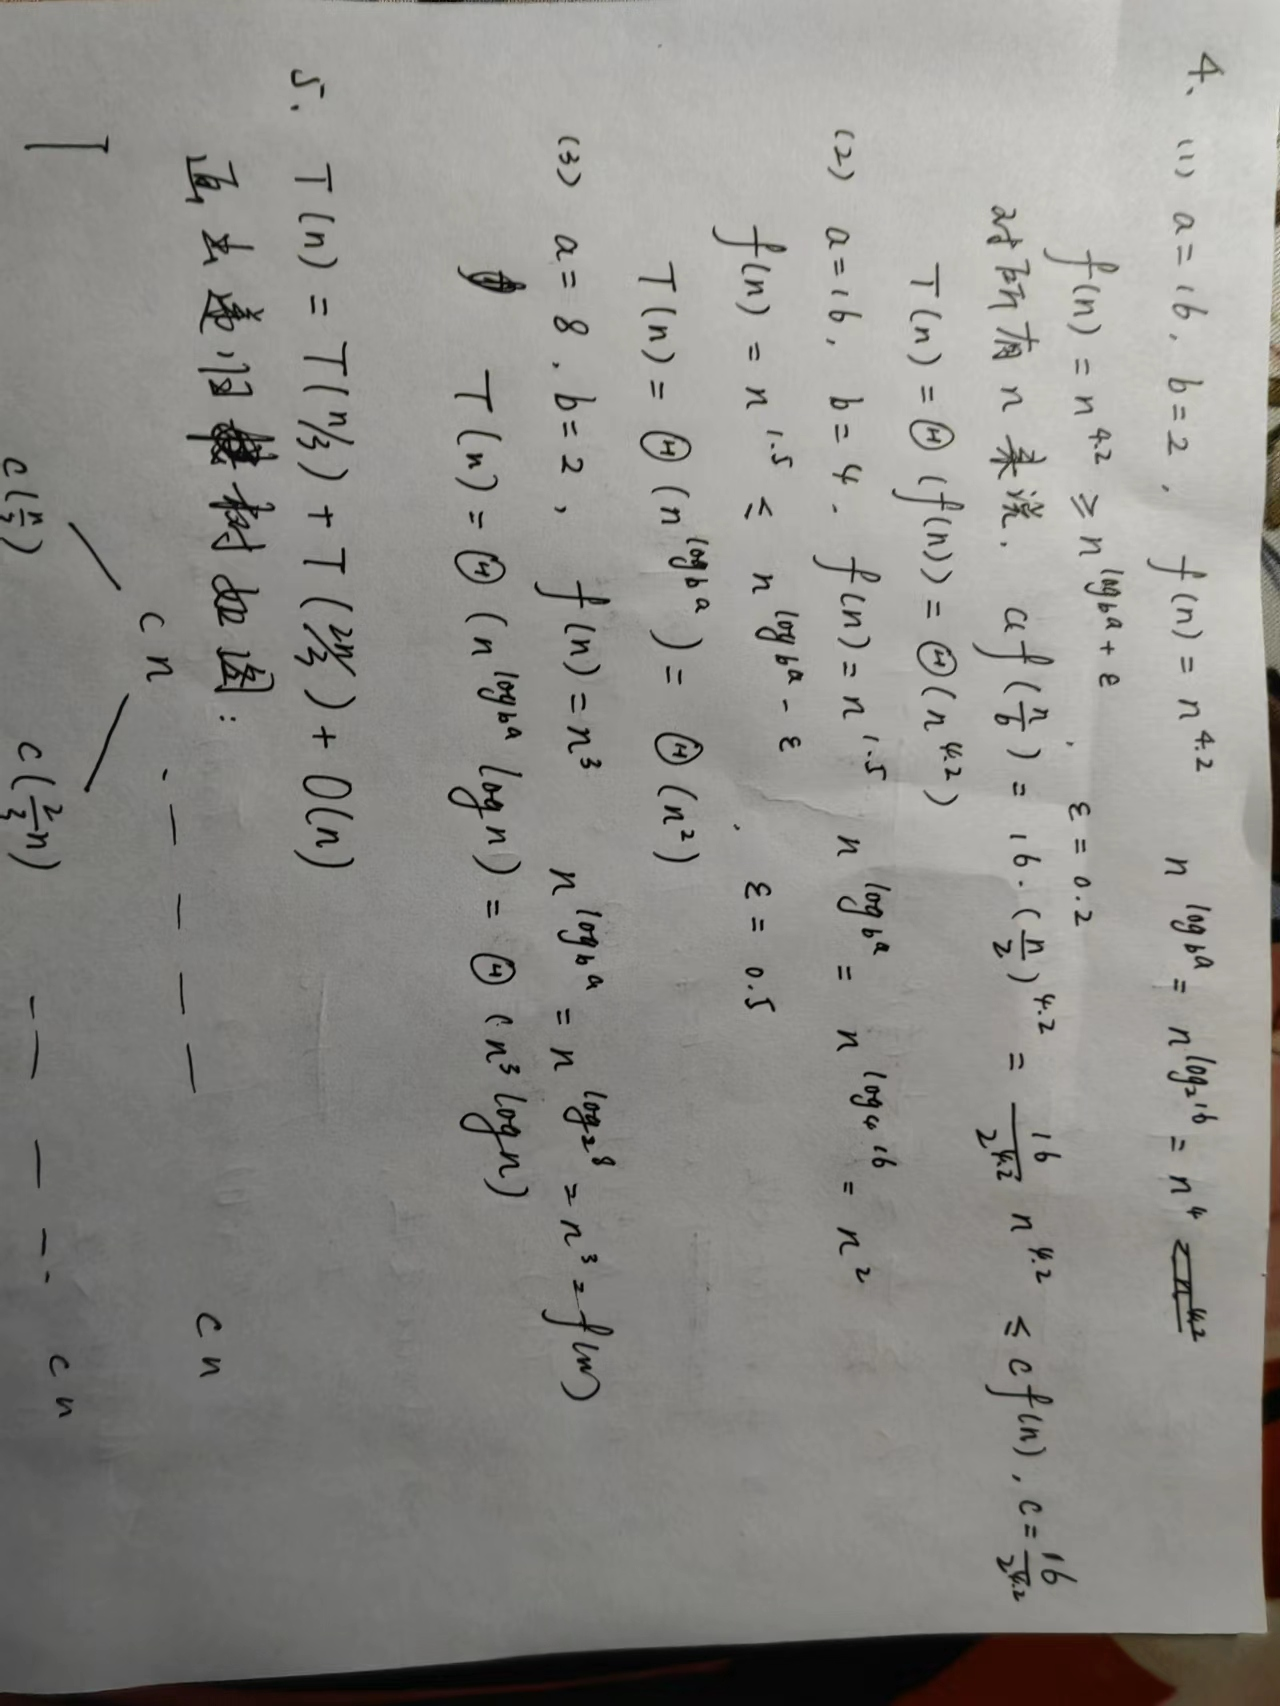 4. (1) a=16, b=2, f(n)=n^4.2 n^log_b a = n^log_2 16 = n^4
f(n)=n^4.2 ≥ n^log_b a+ε, ε=0.2
对所有n来说, af(n/b) = 16·(n/2)^4.2 = 16/2^4.2 n^4.2 ≤ cf(n), c=16/2^4.2
T(n)=Θ(f(n))=Θ(n^4.2)
(2) a=16, b=4, f(n)=n^1.5 n^log_b a = n^log_4 16 = n^2
f(n)=n^1.5 ≤ n^log_b a-ε, ε=0.5
T(n)=Θ(n^log_b a)=Θ(n^2)
(3) a=8, b=2, f(n)=n^3 n^log_b a = n^log_2 8 = n^3 = f(n)
T(n)=Θ(n^log_b a log n)=Θ(n^3 log n)
5. T(n)=T(n/3)+T(2n/3)+O(n)
画出递归树如图:
cn cn
c(n/3) c(2/3 n) cn